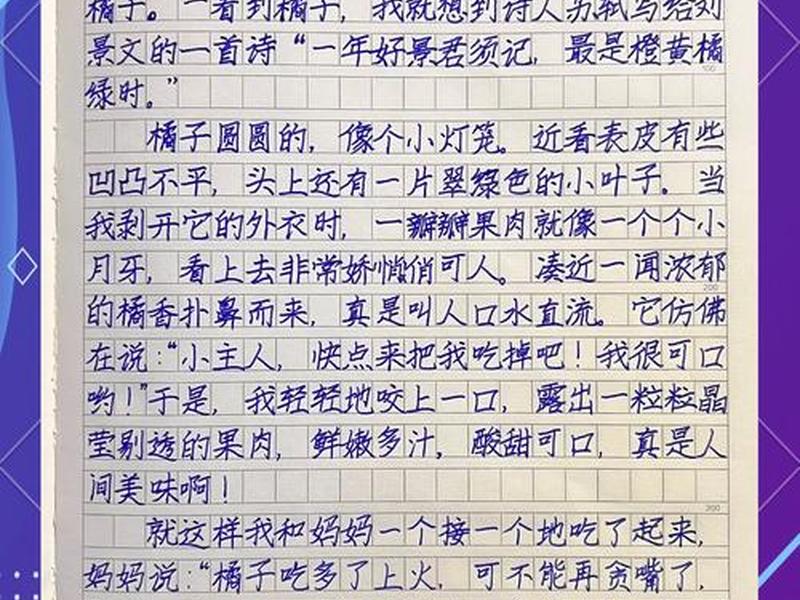 橘子。一看到橘子，我就想到诗人苏轼写给刘
景文的一首诗“一年好景君须记，最是橙黄橘
100
绿时。”
橘子圆圆的，像个小灯笼。近看表皮有些
凹凸不平，头上还有一片翠绿色的小叶子。当
我剥开它的外衣时，一瓣瓣果肉就像一个个小
月牙，看上去非常娇小俏可人。凑近一闻浓郁
200
的橘香扑鼻而来，真是叫人口水直流。它仿佛
在说：“小主人，快点来把我吃掉吧！我很可口
哟！”于是，我轻轻地咬上一口，露出一粒粒晶
莹剔透的果肉，鲜嫩多汁，酸甜可口，真是人
间美味啊！
300
就这样我和妈妈一个接一个地吃了起来，
妈妈说：“橘子吃多了上火，可不能再贪嘴了，